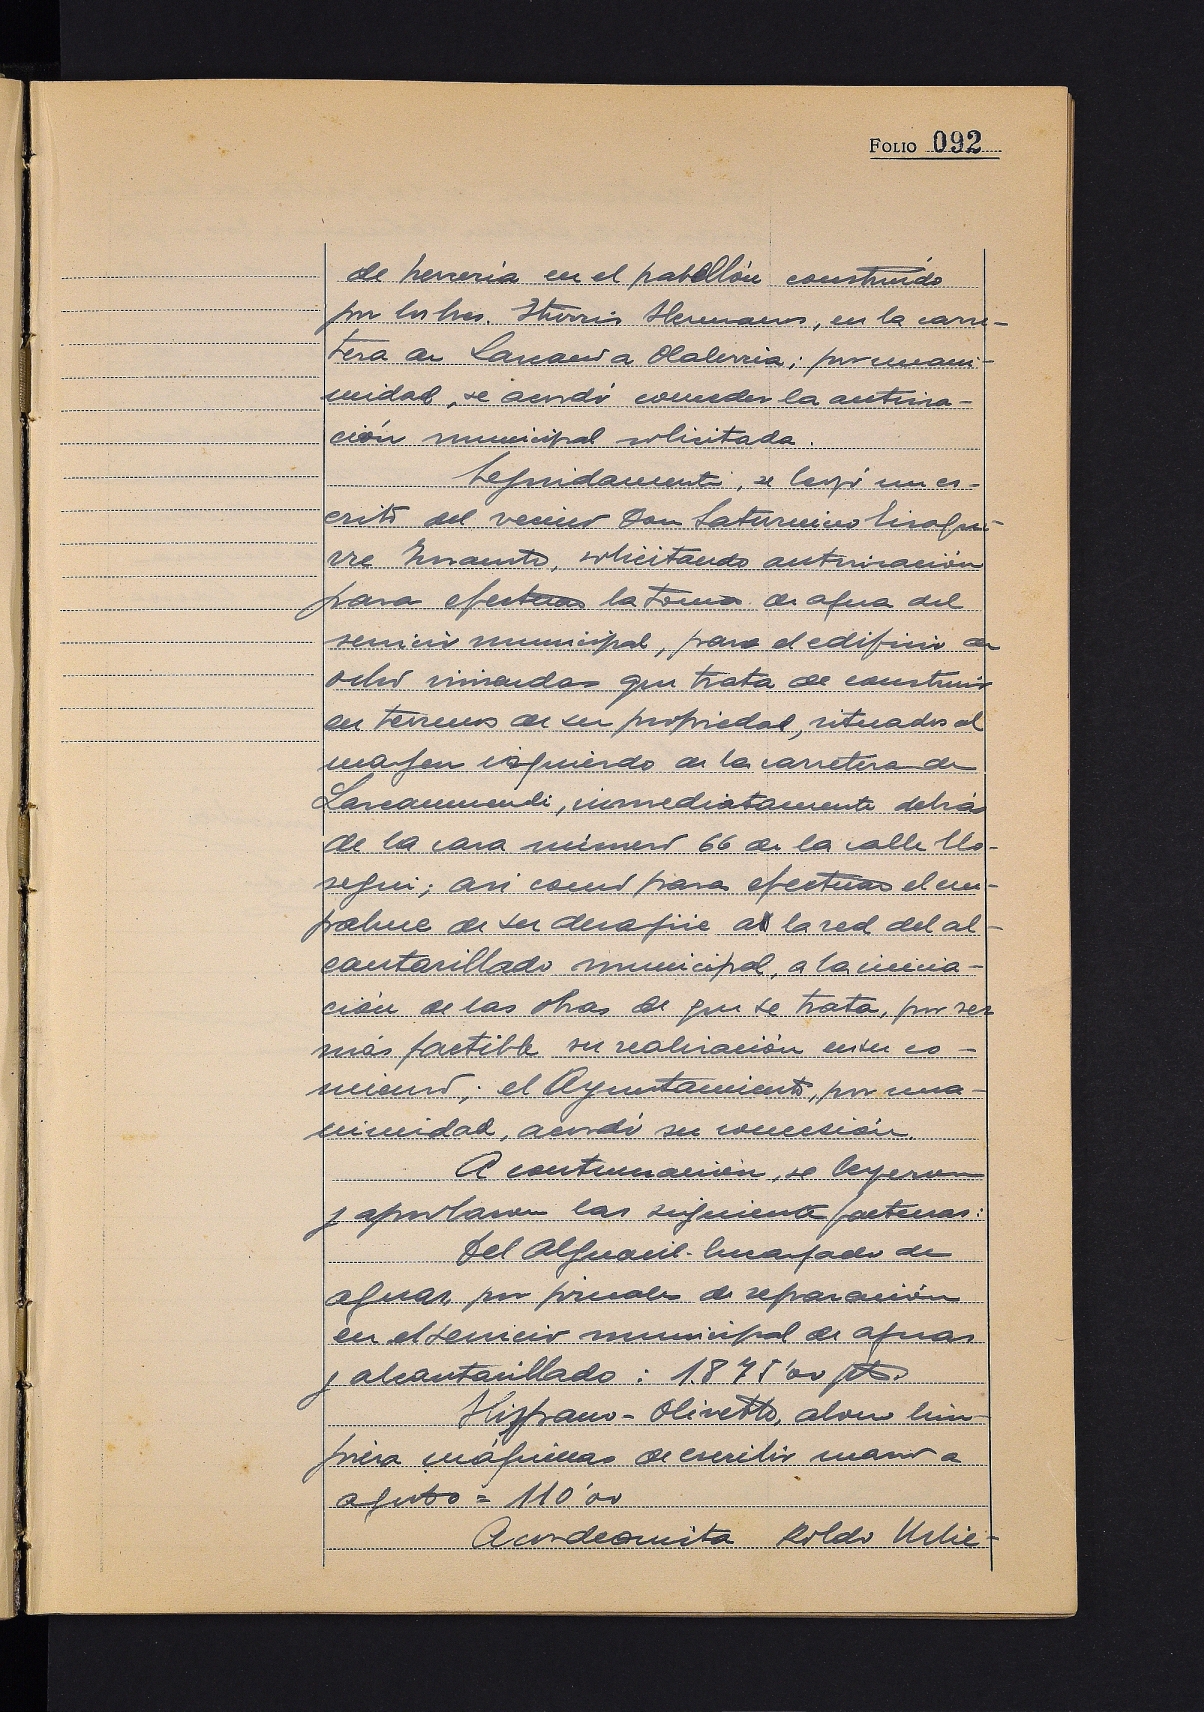 FOLIO 092
de herrería en el pabellón construído
por los hros. Iturriz Hermanos, en la carre-
tera de Lazcano a Olaberria; por unani-
midad, se acordó conceder la autoriza-
ción municipal solicitada.
Seguidamente, se leyó un es-
crito del vecino Don Saturnino Eizagui-
rre, solicitando autorización
para efectuar la toma de agua del
servicio municipal, para el edificio de
ocho viviendas que trata de construir
en terrenos de su propiedad, situados al
margen izquierdo de la carretera de
Lazcanomendi, inmediatamente detrás
de la casa número 66 de la calle Uo-
segui; asi como para efectuar el em-
palme de su desagüe a la red del al-
cantarillado municipal, a la inicia-
ción de las obras de que se trata, por ser
más factible su realización en su co-
mienzo; el Ayuntamiento, por una-
nimidad, acordó su concesión.
A continuación, se leyeron
y aprobaron las siguiente facturas:
Del Alguacil-Encargado de
aguas, por jornales de reparación
en el servicio municipal de aguas
y alcantarillado: 1.875'00 pts.
Hispano-Olivetti, abono lim-
pieza máquinas de escribir marzo a
agosto = 110'00
Acordeonista Koldo Uslie-